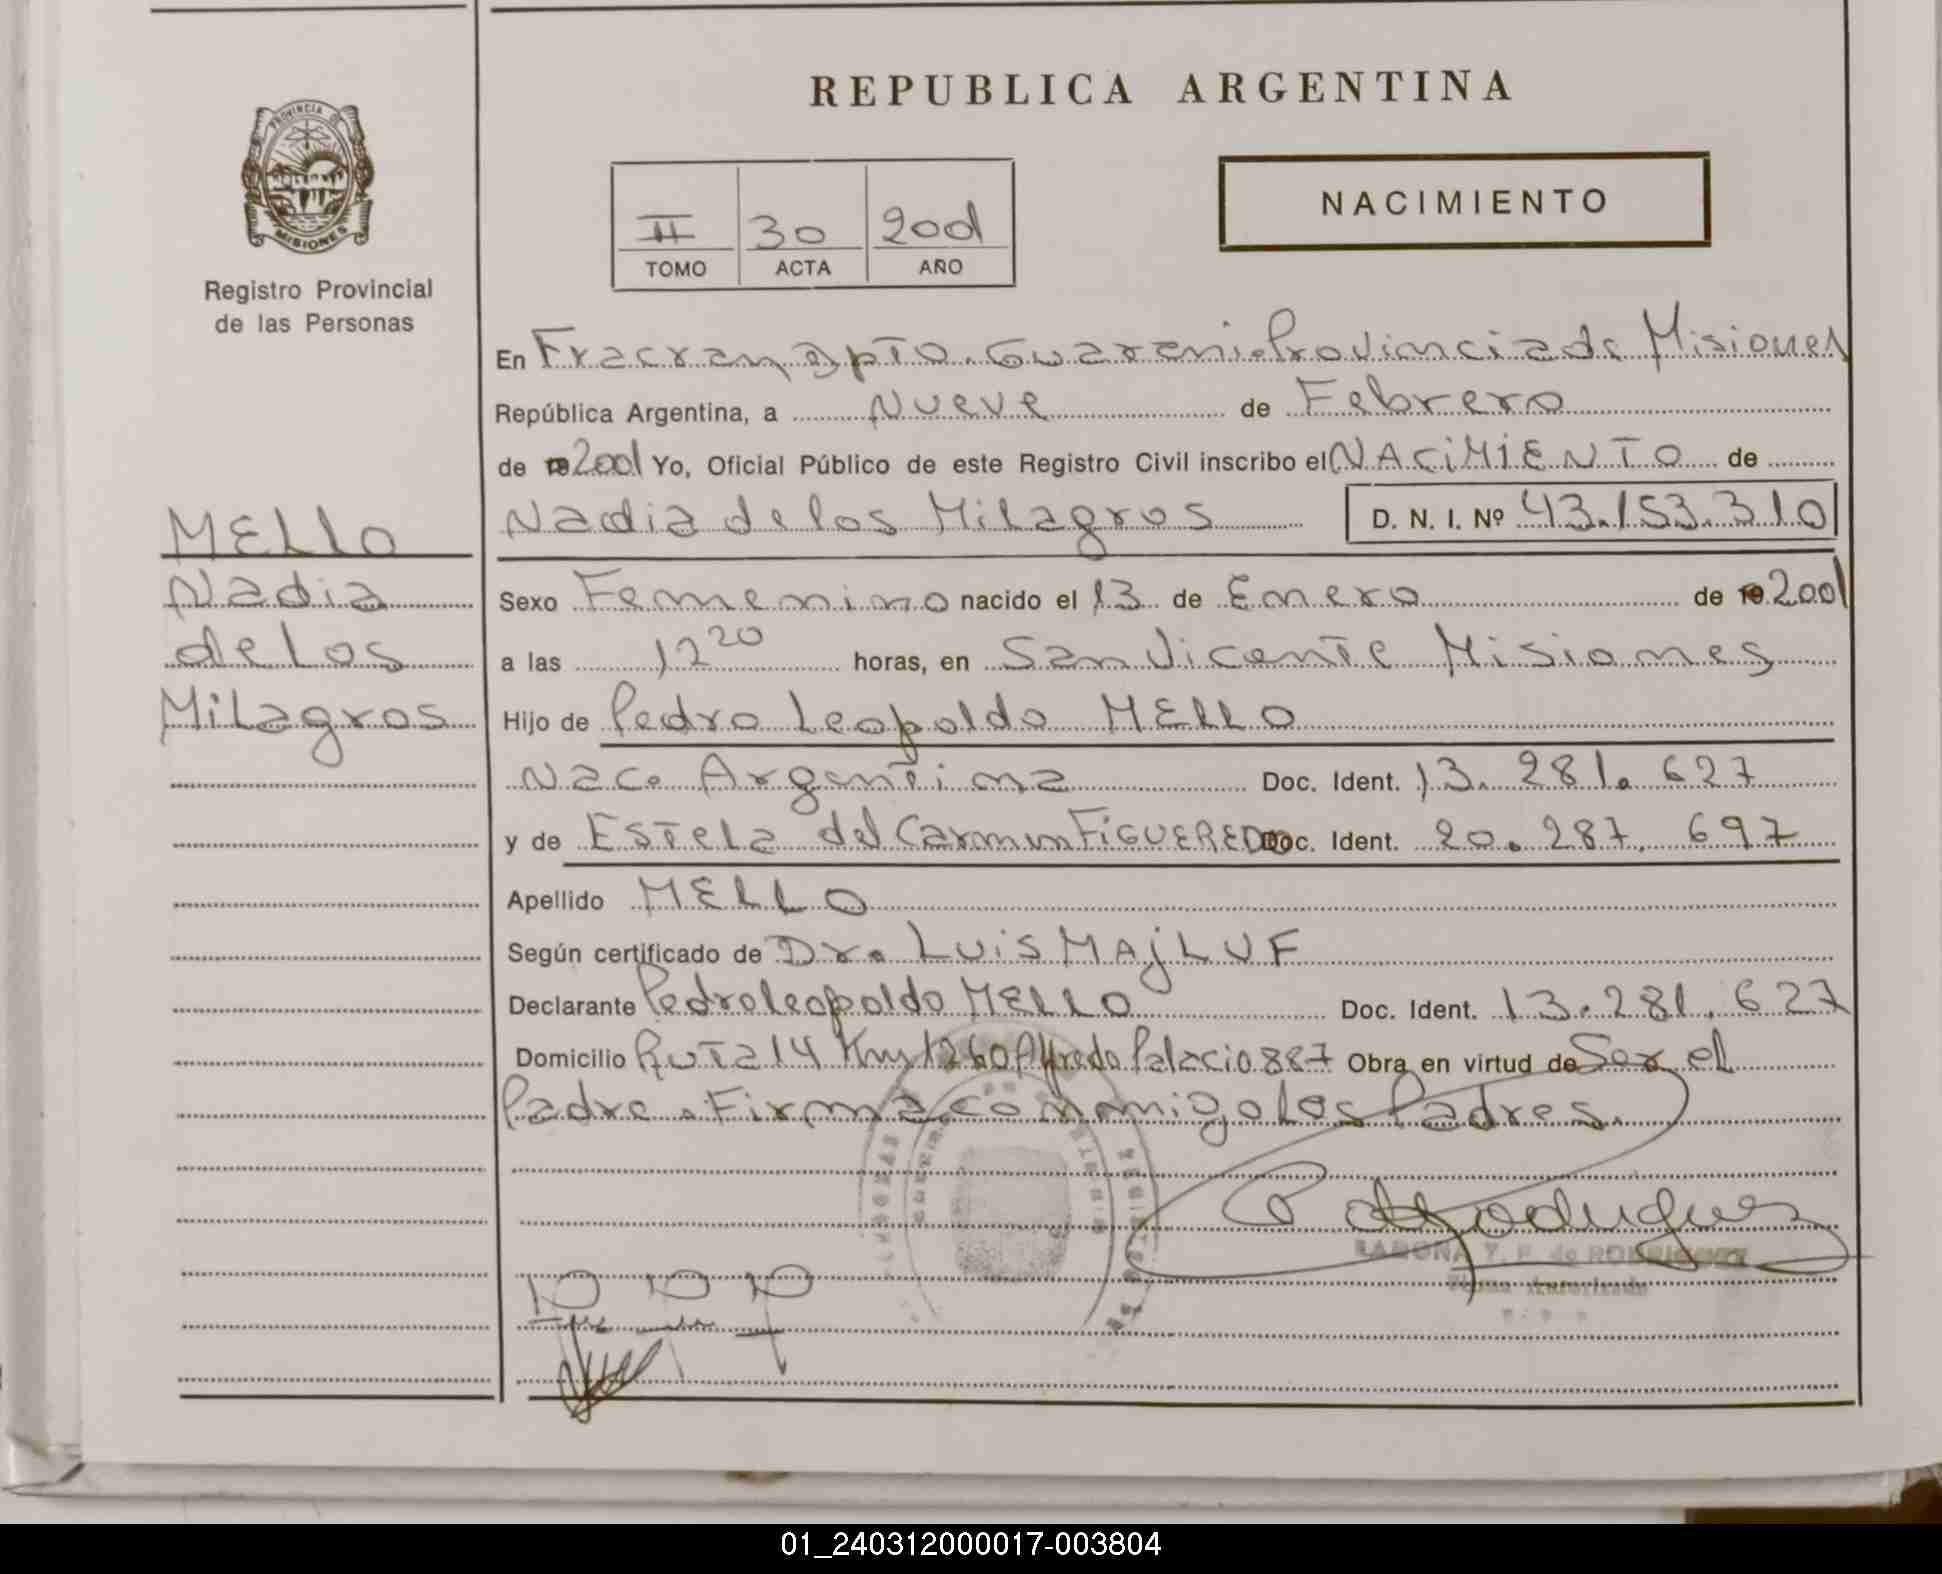 REPUBLICA ARGENTINA
PROVINCIA DE
MISIONES
Registro Provincial
de las Personas
II 30 2001
TOMO ACTA AÑO
NACIMIENTO
En Fracran Dpto. Guarani. Provincia de Misiones
República Argentina, a Nueve de Febrero
de 2001 Yo, Oficial Público de este Registro Civil inscribo el NACIMIENTO de
Nadia de los Milagros D. N. I. Nº 43.153.310
MELLO
Nadia
de Los
Milagros
Sexo Femenino nacido el 13 de Enero de 2001
a las 12 20 horas, en San Vicente Misiones
Hijo de Pedro Leopoldo MELLO
Nac. Argentina Doc. Ident. 13.281.627
y de Estela del Carmen FIGUEREDO Doc. Ident. 20.287.697
Apellido MELLO
Según certificado de Dr. LUIS MAJLUF
Declarante Pedro Leopoldo MELLO Doc. Ident. 13.281.627
Domicilio Ruta 14 Km 1260 Alfredo Palacio 887 Obra en virtud de Ser el
Padre. Firma conmigo los Padres.
de RODRIGUEZ
Firma Autorizada
01_240312000017-003804